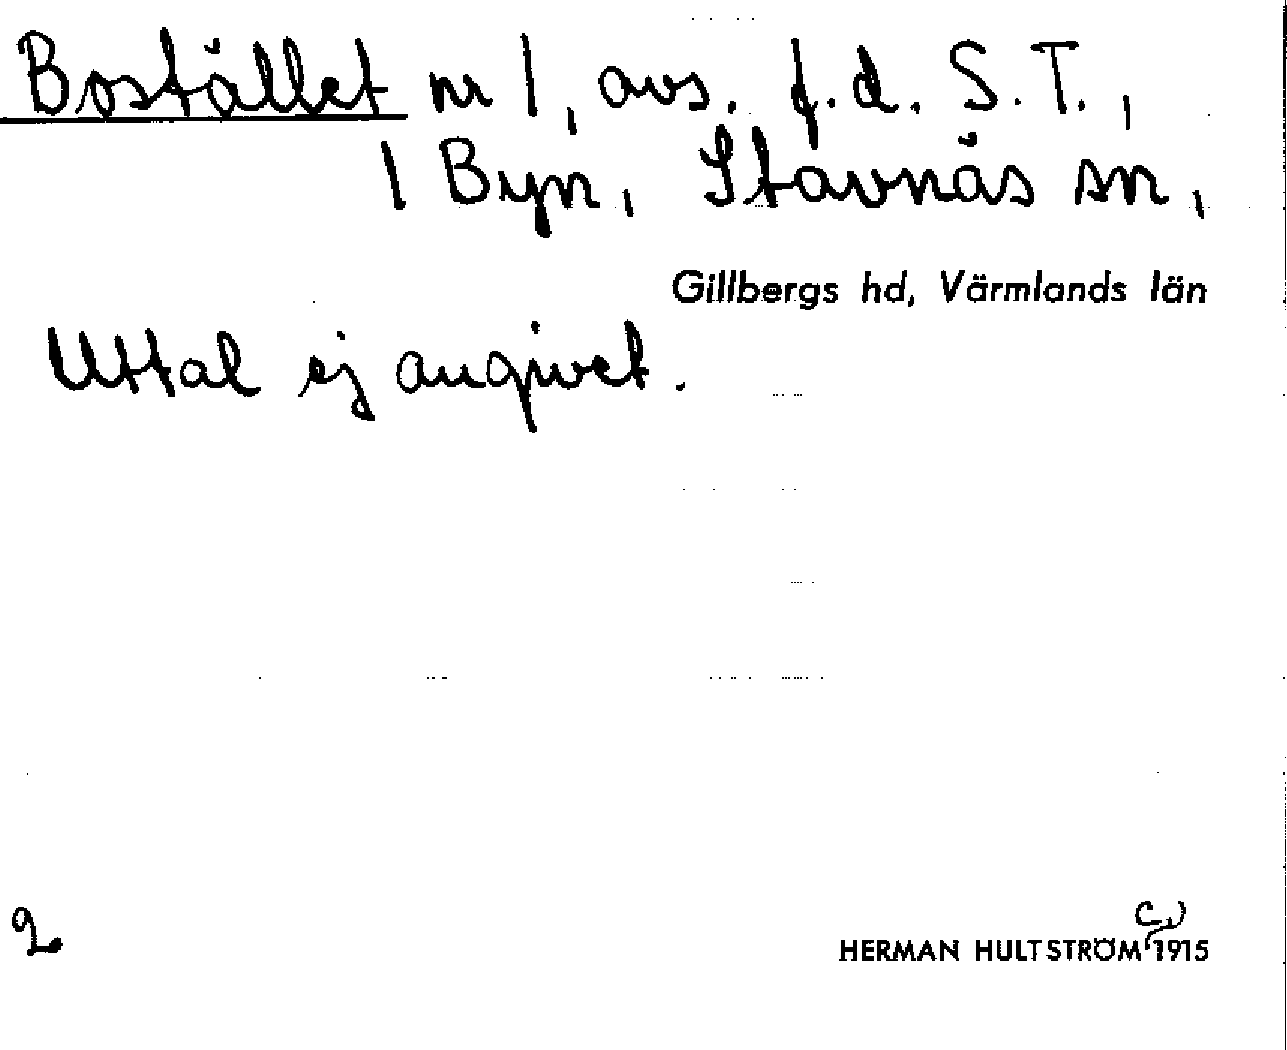 Bostället nr 1, avs. f.d. S.T.,
1 Byn, Stavnäs sn,
Gillbergs hd, Värmlands län
Uttal ej angivet.
HERMAN HULTSTRÖM 1915